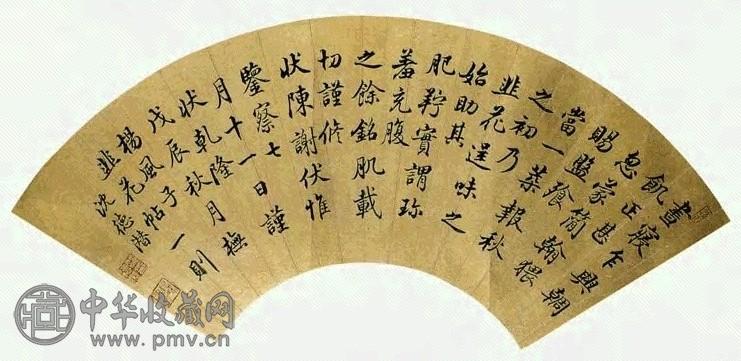 晝寢乍興輖
飢正甚
忽蒙簡翰猥
賜盤飧
當一葉報秋
之初乃
韭花逞味之
始助其
肥羜實謂珍
羞充腹
之餘銘肌載
切謹修
狀陳謝伏惟
鑒察七日謹
月十一
狀乾隆月橅
戊辰秋
楊風子一則
韭花帖
沈德潛
中华收藏网
www.pmv.cn